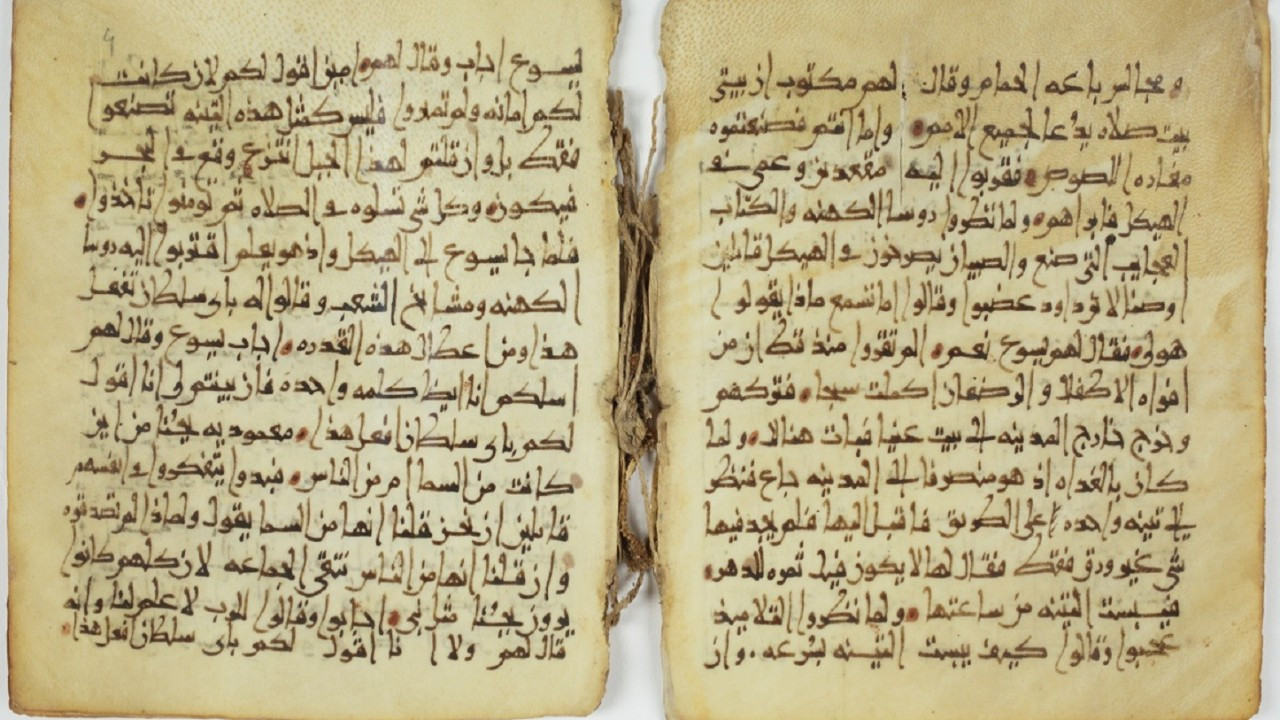 و مجالس باعه الحمام وقال لهم مكتوب ان بيتي
بيت صلاه يدعا لجميع الامم واما انتم فصنعتموه
مغاره للصوص فقربوا اليه مقعدين وعمي في
الهيكل فابراهم ولما نظروا روسا الكهنه والكتاب
العجايب التي صنع والصبيان يصرخون في الهيكل قايلين
اوصنا لابن داود غضبوا وقالوا اما تسمع ماذا يقولوا
هولي فقال لهم يسوع نعم الم تقروا منذ قط ان من
افواه الاطفال والرضعان اكملت سبحا فتركهم
وخرج خارج المدينه الى بيت عنيا فبات هنالك ولما
كان بالغداه اذ هو منصرفا الى المدينه جاع فنظر
الى تينه واحده على الطريق فاقبل اليها فلم يجد فيها
شي غير ورق فقط فقال لها لا يكون فيك ثمره للدهر
فيبست التينه من ساعتها ولما نظروا التلاميذ
عجبوا وقالوا كيف يبست التينه بسرعه وان
يسوع اجاب وقال لهم امين اقول لكم لان كانت
لكم امانه ولم تمتروا فليس كمثل هذه التينه تصنعوا
فقط بل وان قلتم لهذا الجبل انتزع وقع في البحر
فيكون وكل شي تسلوه في الصلاه ثم تومنوا تاخذوا
فلما جا يسوع الى الهيكل واذ هو يعلم اقتربوا اليه روسا
الكهنه ومشايخ الشعب وقالوا له باي سلطان تفعل
هذا ومن اعطاك هذه القدره اجاب يسوع وقال لهم
اسلكم انا ايضا كلمه واحده فان بينتم لي انا اقول
لكم باي سلطان افعل هذا معموديه يحنا من اين
كانت من السما ام من الناس فبدوا يتفكروا في انفسهم
قايلين ان نحن قلنا انها من السما يقول ولماذا لم تصدقوه
وان قلنا انها من الناس نتقي الجماعه لان كلهم كانوا
يرون يحنا مثل نبي اجابوا وقالوا للرب لا علم لنا وانه
قال لهم ولا انا اقول لكم باي سلطان افعل هذا